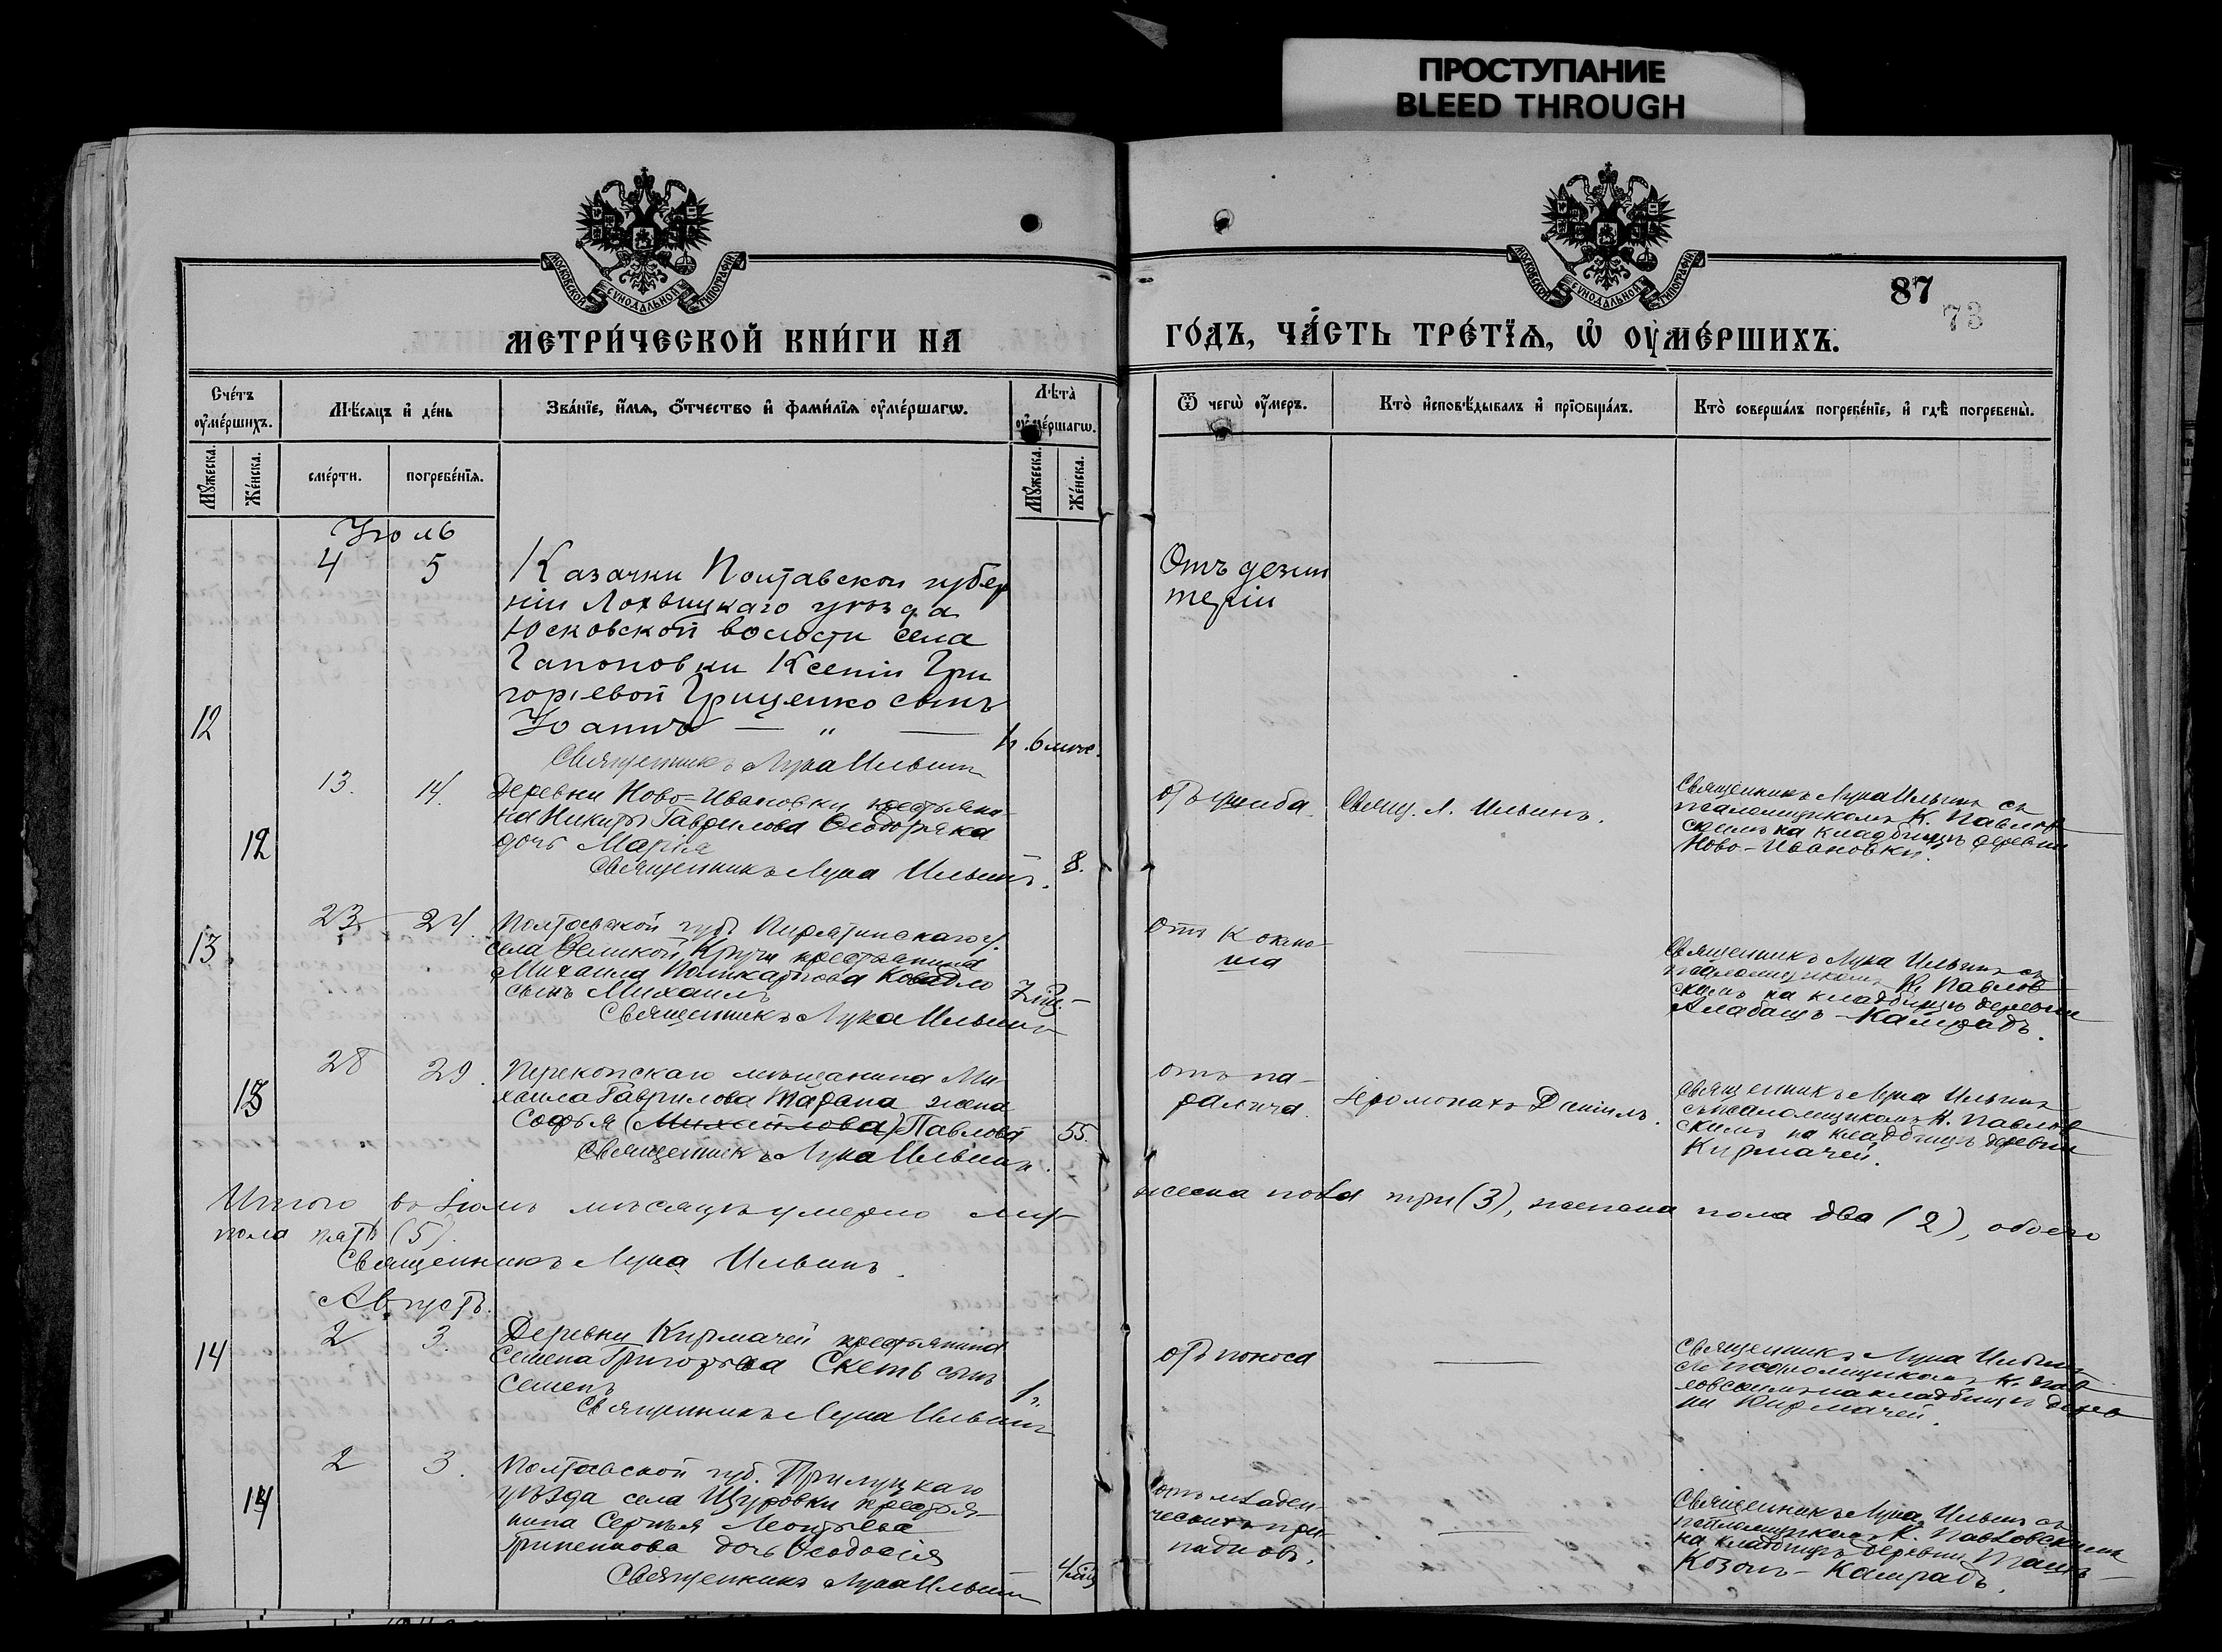 ПРОСТУПАНИЕ
BLEED THROUGH
МОСКОВСКОЙ СѴНОДАЛЬНОЙ ТИПОГРАФІИ
МОСКОВСКОЙ СѴНОДАЛЬНОЙ ТИПОГРАФІИ
87
73
МЕТРИ́ЧЕСКОЙ КНИ́ГИ НА
ГО́ДЪ, ЧА́СТЬ ТРЕ́ТЇѦ, Ѡ҆ ОУ҆МЕ́РШИХЪ.
Сче́тъ оу҆ме́ршихъ.
Мѣ́сяцъ и҆ де́нь
Зва́нїе, и҆́мѧ, ѻ҆́тчество и҆ фами́лїѧ оу҆ме́ршагѡ.
Лѣ́та оу҆ме́ршагѡ.
Ѿ чегѡ̀ оу҆́меръ.
Кто̀ и҆сповѣ́дывалъ и҆ прїѡбща́лъ.
Кто̀ соверша́лъ погребе́нїе, и҆ гдѣ̀ погребены̀.
Мꙋ́жеска.
Же́нска.
сме́рти.
погребе́нїѧ.
Мꙋ́жеска.
Же́нска.
Іюль
4 5 Казачки Полтавской губер
ніи Лохвицкаго уѣзда
Юсковской волости села
Гапоновки Ксеніи Гри
горіевой Грищенко сынъ
12 Іоаннъ — „ — 1 г. 6 мѣс.
Священникъ Лука Ильинъ
Отъ дезин
теріи
13. 14. Деревни Ново-Ивановки крестьяни-
на Никиты Гаврилова Ѳедоряка
12 дочь Марія
Священникъ Лука Ильинъ. 8.
отъ ушиба. Свящ. Л. Ильинъ.
Священникъ Лука Ильинъ съ
псаломщикомъ К. Павлов
скимъ на кладбищѣ деревни
Ново-Ивановки.
23 24. Полтавской губ. Пирятинскаго у.
13. села Великой Кручи крестьянина
Михаила Поликарпова
сынъ Михаилъ
Священникъ Лука Ильинъ
отъ коклю
ша
—
Священникъ Лука Ильинъ съ
псаломщикомъ К. Павлов
скимъ на кладбищѣ деревни
Алабашъ-Камрадъ.
28 29. Перекопскаго мѣщанина Ми-
13 хаила Гаврилова Тарана жена
Софья (Михайлова) Павлова 55.
Священникъ Лука Ильинъ.
отъ па-
ралича. Іеромонахъ Даніилъ.
Священникъ Лука Ильинъ
съ псаломщикомъ К. Павлов
скимъ на кладбищѣ деревни
Кирмачей.
Итого въ іюлѣ мѣсяцѣ умерло муж
жеска пола три (3), женска пола два (2), обоего
пола пять (5).
Священникъ Лука Ильинъ.
Августъ.
2 3. Деревни Кирмачей крестьянина
14 Семена Григорьева сынъ
Семенъ 1 г.
Священникъ Лука Ильинъ
отъ поноса
—
Священникъ Лука Ильинъ
съ псаломщикомъ К. Пав
ловскимъ на кладбищѣ дерев
ни Кирмачей.
2 3. Полтавской губ. Прилуцкаго
14 уѣзда села Щуровки крестья-
нина Сергѣя Леонтьева
дочь Ѳеодосія
Священникъ Лука Ильинъ 4 мѣс
отъ младен-
ческихъ при-
падковъ.
—
Священникъ Лука Ильинъ съ
псаломщикомъ К. Павловскимъ
на кладбищѣ деревни
Камрадъ.